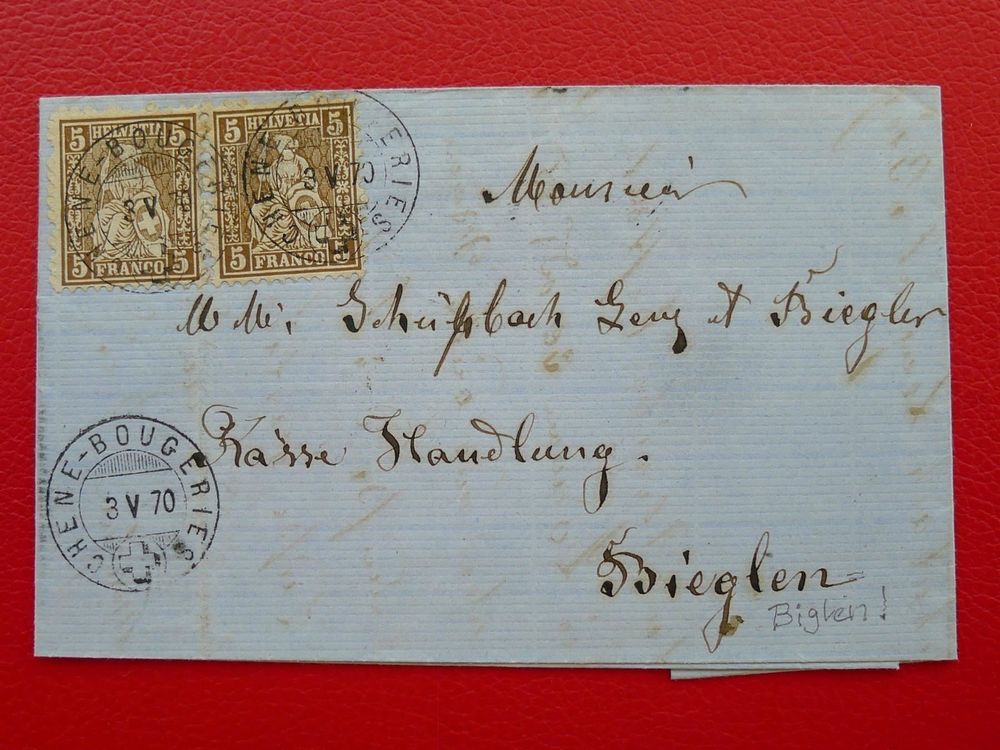 5 HELVETIA 5
5 FRANCO 5
5 HELVETIA 5
5 FRANCO 5
CHENE-BOUGERIES
3 V
CHENE-BOUGERIES
3 V 70
Monsieur
M Mr. Schüpbach et Biegler
Kässe Handlung.
CHENE-BOUGERIES
3 V 70
Bieglen
Biglen!